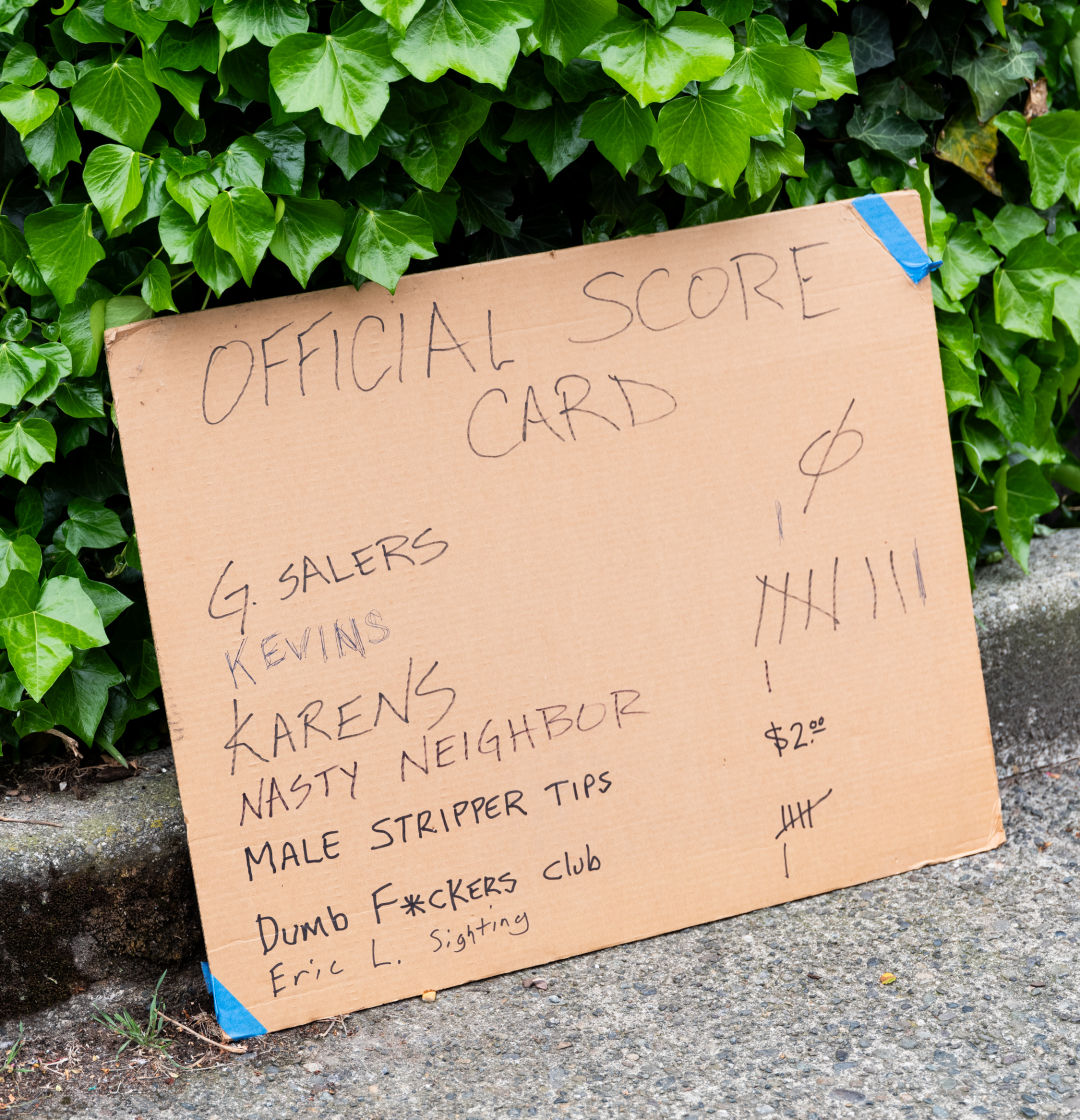 OFFICIAL SCORE
CARD
G. SALERS Ø
KEVINS |
KARENS 卌 |||
NASTY NEIGHBOR |
MALE STRIPPER TIPS $2.00
Dumb F*cKERS club 卌
Eric L. Sighting |